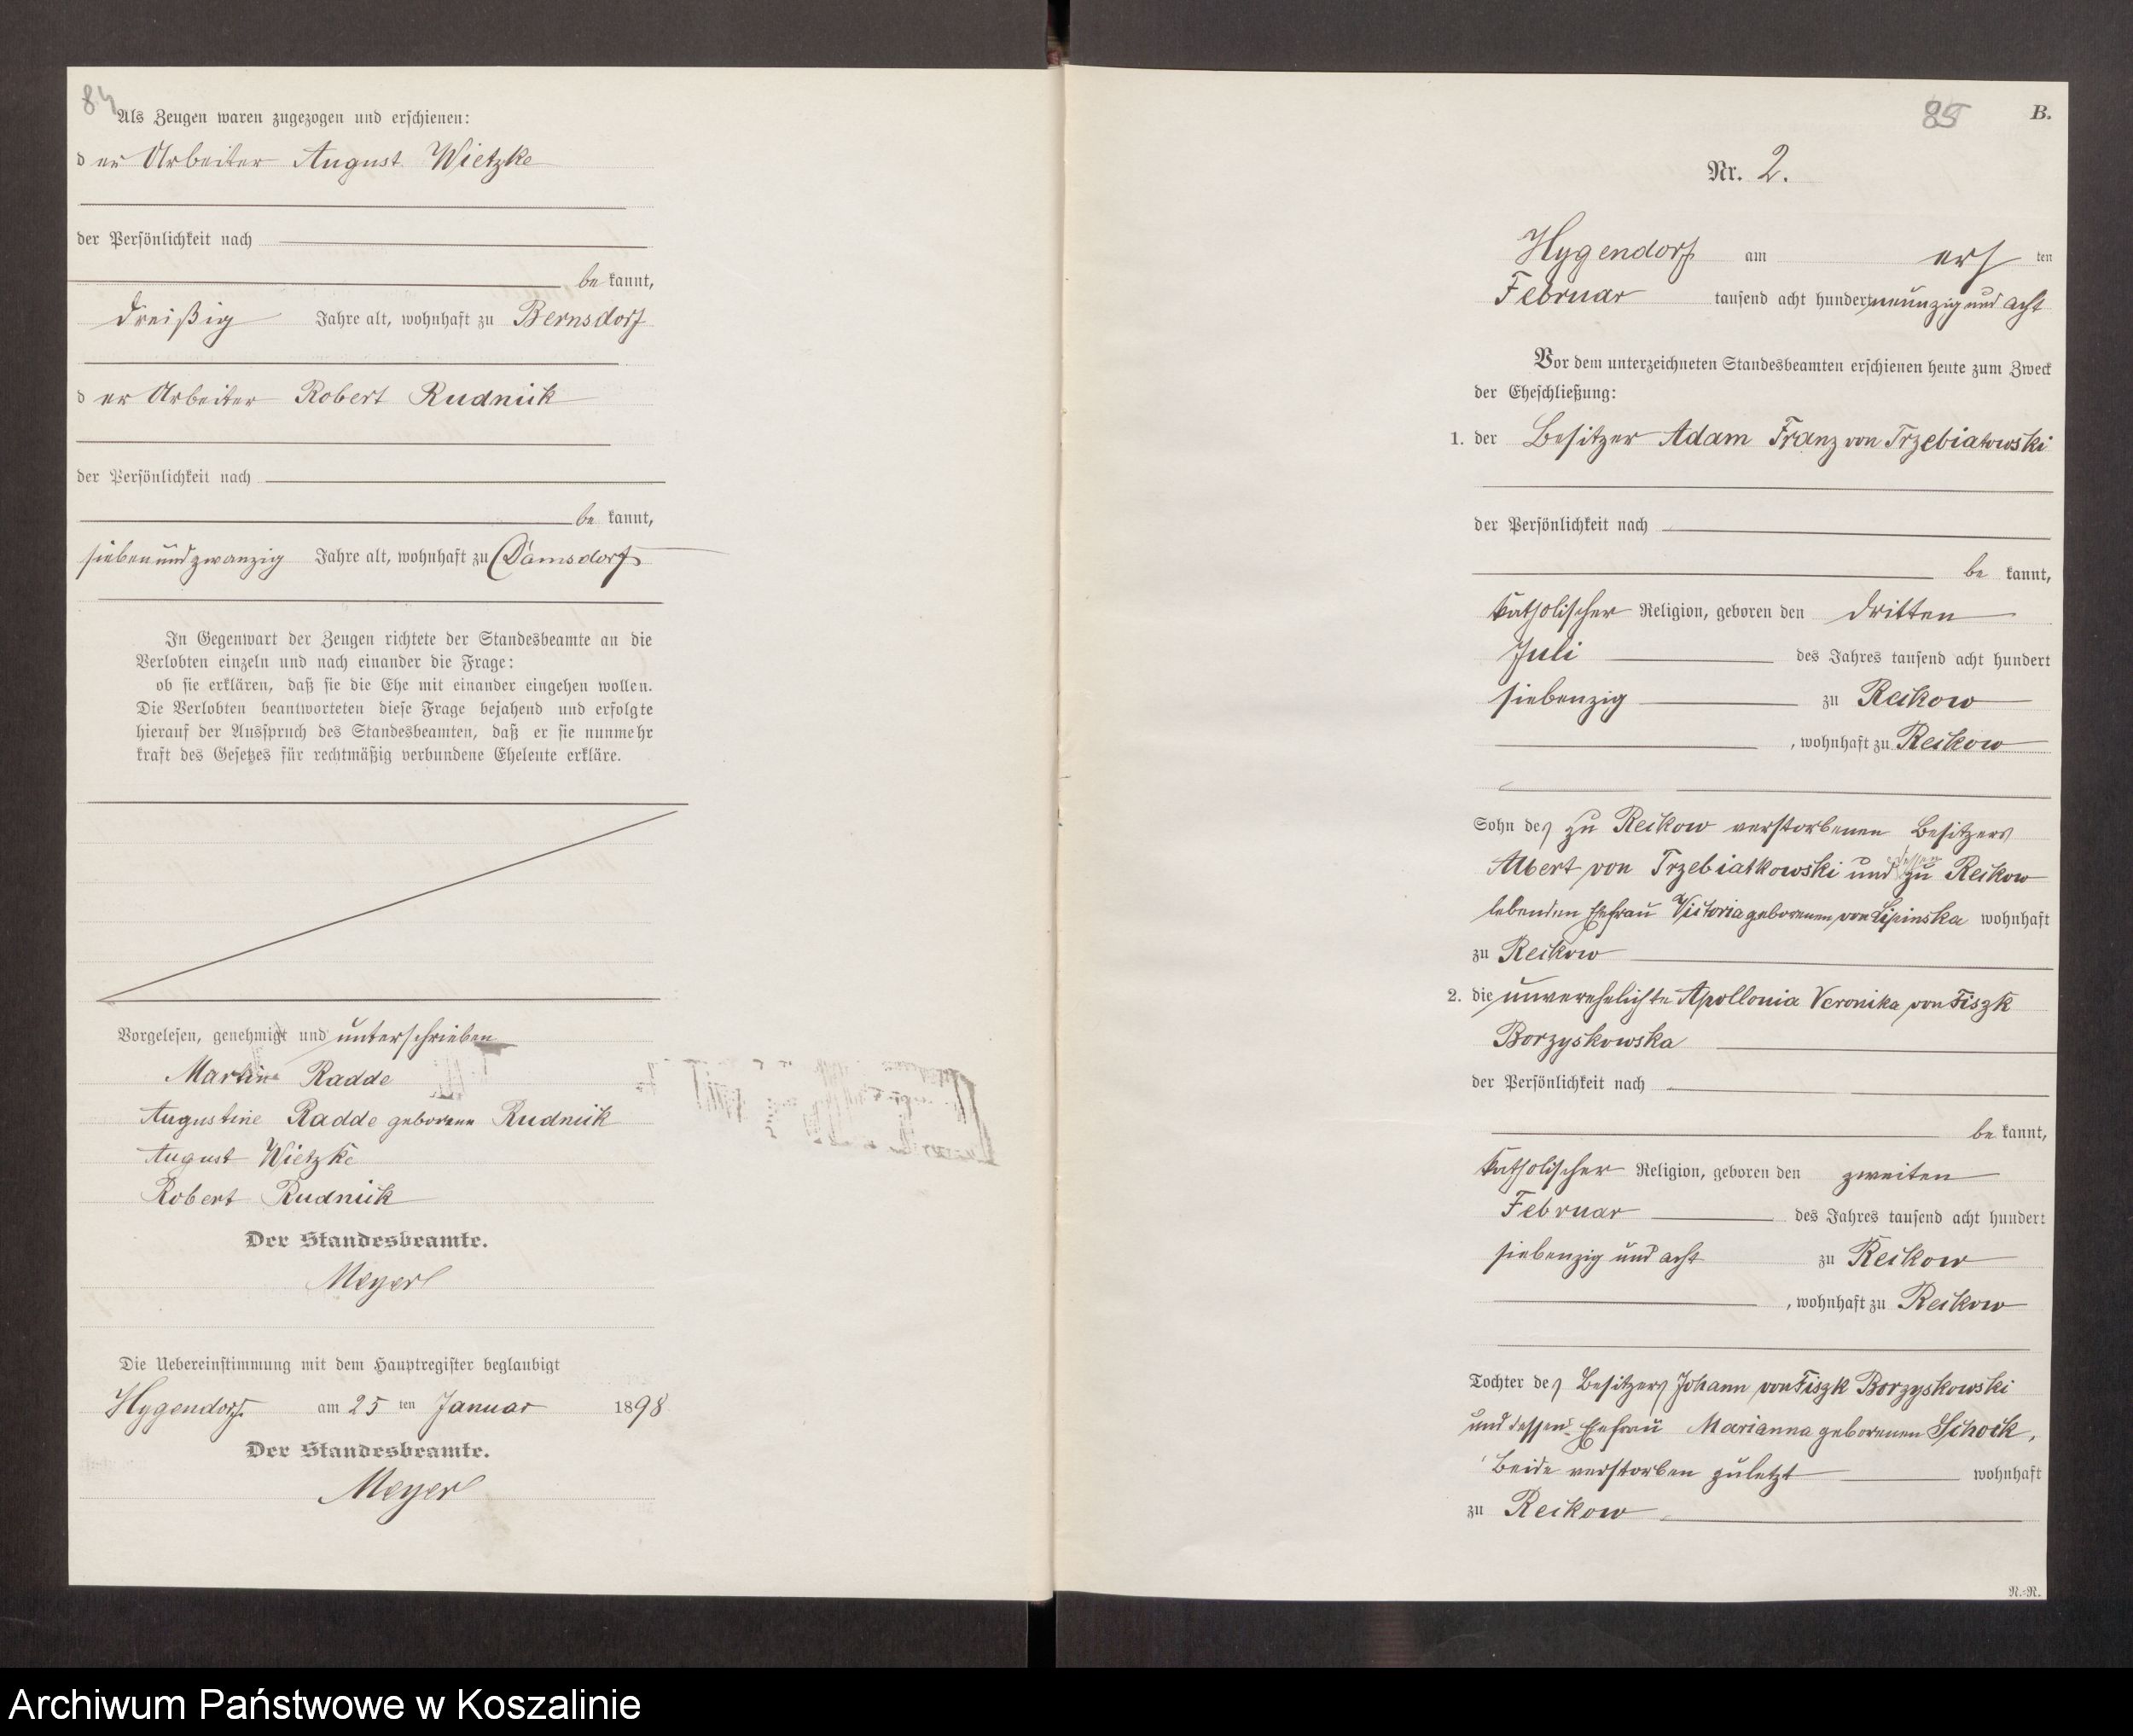 84
Als Zeugen waren zugezogen und erschienen:
der Arbeiter August Wietzke
der Persönlichkeit nach
bekannt,
dreißig Jahre alt, wohnhaft zu Bernsdorf
der Arbeiter Robert Rudnick
der Persönlichkeit nach
bekannt,
siebenundzwanzig Jahre alt, wohnhaft zu Damsdorf
In Gegenwart der Zeugen richtete der Standesbeamte an die
Verlobten einzeln und nach einander die Frage:
ob sie erklären, daß sie die Ehe mit einander eingehen wollen.
Die Verlobten beantworteten diese Frage bejahend und erfolgte
hierauf der Ausspruch des Standesbeamten, daß er sie nunmehr
kraft des Gesetzes für rechtmäßig verbundene Eheleute erkläre.
Vorgelesen, genehmigt und unterschrieben
Martin Radde
Augustine Radde geborene Rudnick
August Wietzke
Robert Rudnick
Der Standesbeamte.
Meyer
Die Uebereinstimmung mit dem Hauptregister beglaubigt
Hygendorf am 25 ten Januar 1898
Der Standesbeamte.
Meyer
85 B.
Nr. 2.
Hygendorf am ersten
Februar tausend acht hundert neunzig und acht
Vor dem unterzeichneten Standesbeamten erschienen heute zum Zweck
der Eheschließung:
1. der Besitzer Adam Franz von Trzebiatowski
der Persönlichkeit nach
bekannt,
katholischer Religion, geboren den dritten
Juli des Jahres tausend acht hundert
siebenzig zu Reikow
, wohnhaft zu Reikow
Sohn des zu Reikow verstorbenen Besitzers
Albert von Trzebiatkowski und dessen zu Reikow
lebenden Ehefrau Victoria geborenen von Lipinska wohnhaft
zu Reikow
2. die unverehelichte Apollonia Veronika von Fiszk
Borzyskowska
der Persönlichkeit nach
bekannt,
katholischer Religion, geboren den zweiten
Februar des Jahres tausend acht hundert
siebenzig und acht zu Reikow
, wohnhaft zu Reikow
Tochter des Besitzers Johann von Fiszk Borzyskowski
und dessen Ehefrau Marianna geborenen Schock,
Beide verstorben zuletzt wohnhaft
zu Reikow
N.-R.
Archiwum Państwowe w Koszalinie